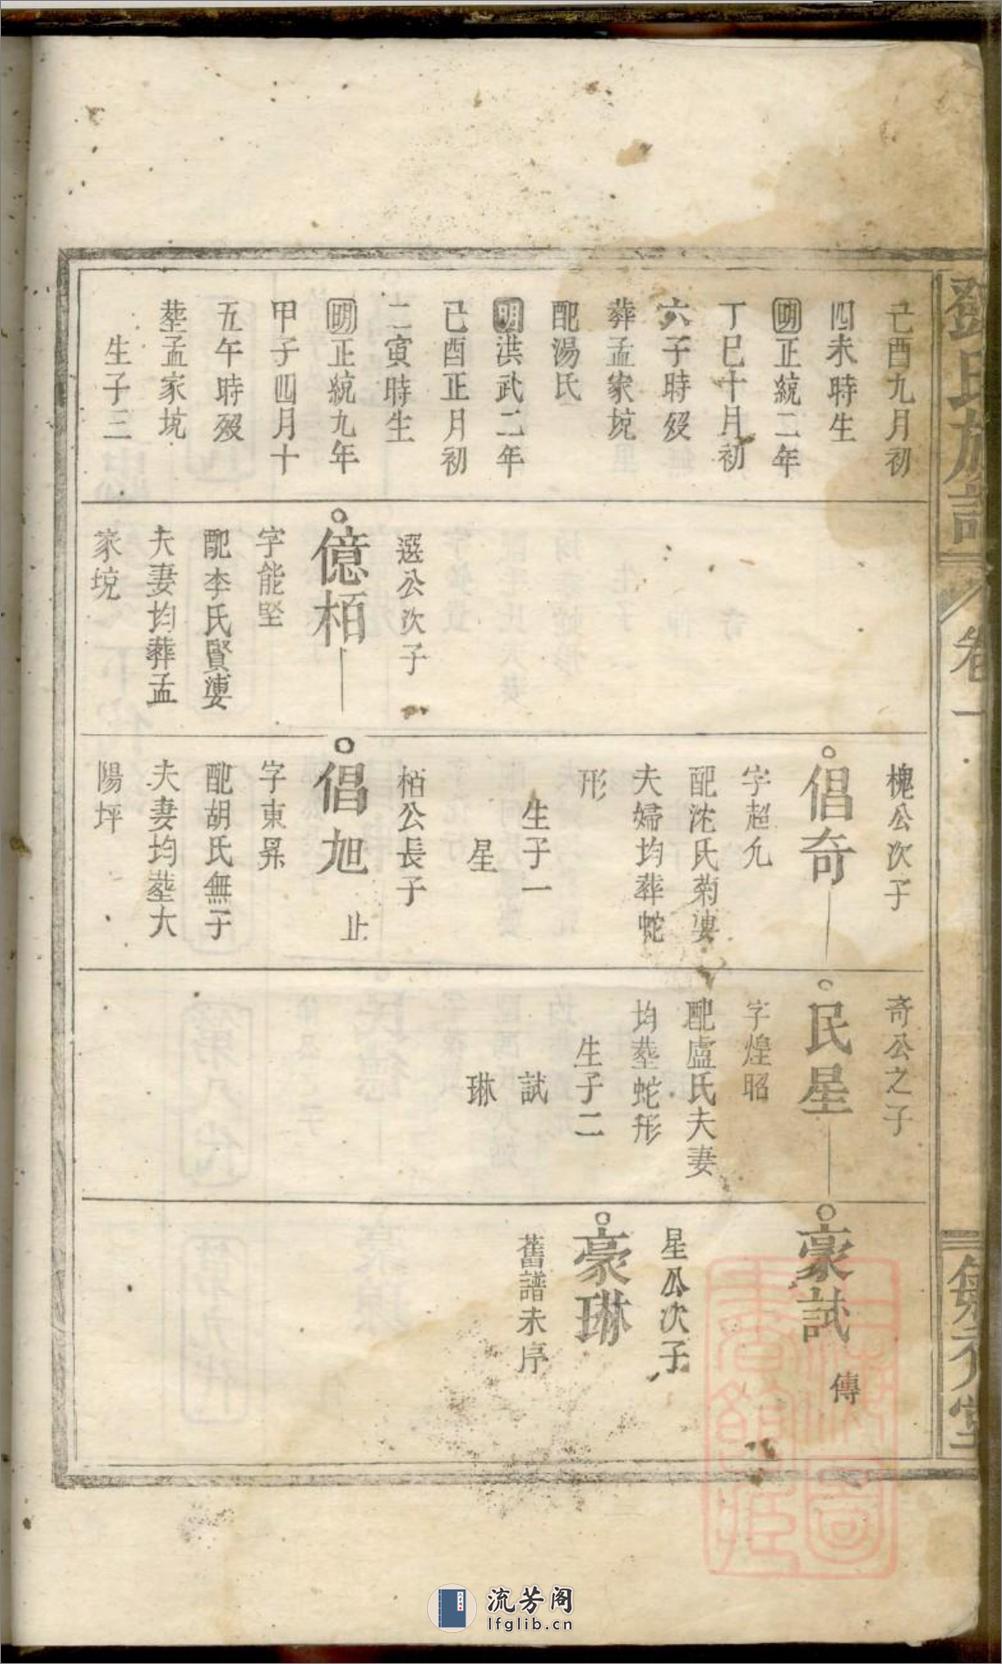 鄧氏族譜
卷一
己酉九月初
四未時生
明正統二年
丁巳十月初
六子時歿
葬孟家境
配湯氏
明洪武二年
己酉正月初
二寅時生
明正統九年
甲子四月十
五午時歿
塟孟家境
生子三
選公次子
億栢
字能堅
配李氏賢㜑
夫妻均葬孟
家境
槐公次子
倡奇
字超允
配沈氏菊㜑
夫婦均葬蛇
形
生子一
星
栢公長子
倡旭
止
字東昇
配胡氏無子
夫妻均塟大
陽坪
奇公之子
民星
字煌昭
配盧氏夫妻
均塟蛇形
生子二
試
琳
豪試
傳
星公次子
豪琳
舊譜未序
流芳阁
lfglib.cn